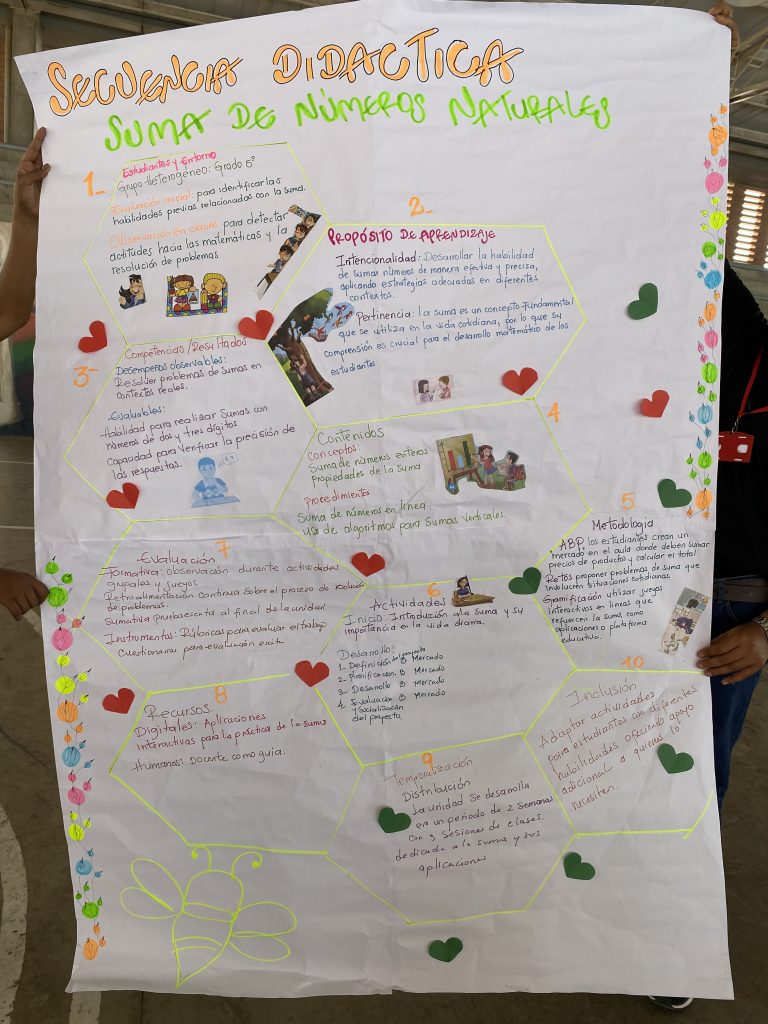 SECUENCIA DIDACTICA
SUMA DE NÚMEROS NATURALES
1-
Estudiantes y Entorno
Grupo Heterogéneo: Grado 5°
Evaluación inicial para identificar las
habilidades previas relacionadas con la suma.
Observación en clases: para detectar
actitudes hacia las matemáticas y la
resolución de problemas
2-
PROPÓSITO DE APRENDIZAJE
Intencionalidad: Desarrollar la habilidad
de sumar números de manera efectiva y precisa,
aplicando estrategias adecuadas en diferentes
contextos.
Pertinencia: la suma es un concepto Fundamental
que se utiliza en la vida cotidiana, por lo que su
comprensión es crucial para el desarrollo matemático de los
estudiantes
3-
Competencias/Resultados
Desempeños observables:
Resolver problemas de sumas en
contextos reales.
Evaluables:
Habilidad para realizar sumas con
números de dos y tres dígitos
Capacidad para verificar la precisión de
las respuestas.
4
Contenidos
Conceptos:
Suma de números enteros
Propiedades de la Suma
Procedimientos
Suma de números en línea
Uso de algoritmos para Sumas Verticales.
5
Metodologia
ABP: los estudiantes crean un
mercado en el aula donde deben sumar
precios de productos y calcular el total
Retos proponer problemas de suma que
involucren situaciones cotidianas
Gamificación utilizar juegos
interactivos en lineas que
refuercen la suma como
aplicaciones o plataforma
educativa.
6
Actividades
Inicio: Introducción ala suma y su
importancia en la vida diaria.
Desarrollo:
1- Definición del proyecto 8 Mercado
2- Planificación 8 Mercado
3- Desarrollo 8 Mercado
4 Evaluación 8 Mercado
y socialización
del proyecto
7
Evaluación
Formativa: observación durante actividades
grupales y juegos
Retroalimentación continua sobre el proceso de resolución
de problemas.
Sumativa prueba escrita al final de la unidad
Instrumentos: Rúbricas para evaluar el trabajo
Cuestionarios para evaluación escrita
8
Recursos
Digitales: Aplicaciones
interactivas para la práctica de la suma
Humanos: Docente como guia.
9
Temporalización
Distribución
La unidad se desarrolla
en un periodo de 2 semanas
con 3 sesiones de clases.
dedicada a la suma y sus
aplicaciones
10
Inclusión
Adaptar actividades
para estudiantes con diferentes
habilidades ofreciendo apoyo
adicional a quienes lo
necesiten.